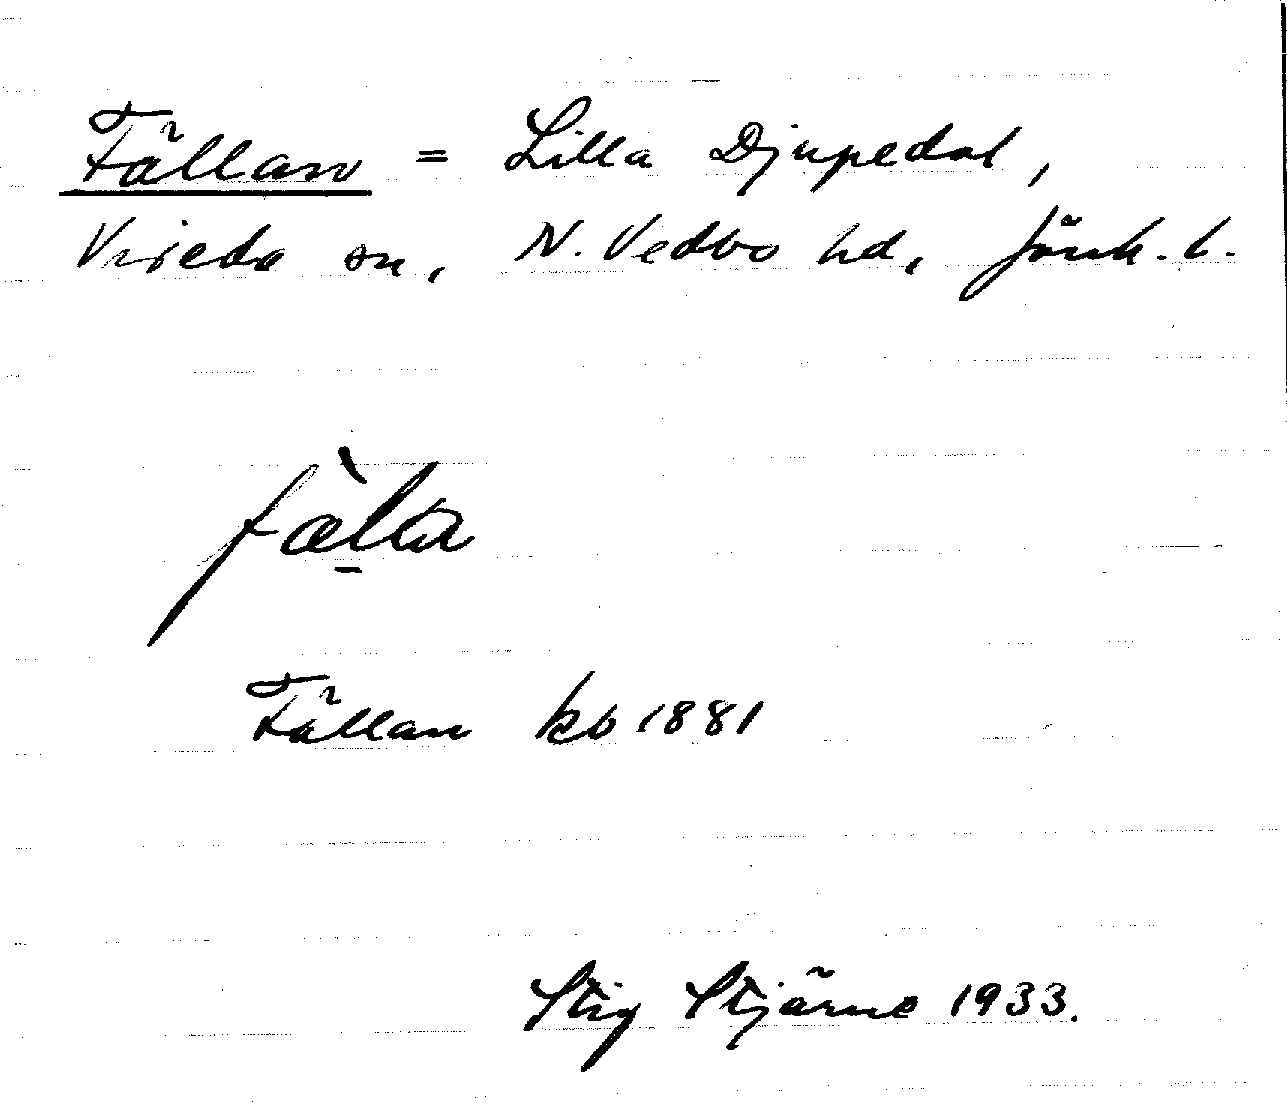 Fällan = Lilla Djupedal,
Vrieda sn, N. Vedbo hd, Jönk. l.
fæ̀l̠a
Fällan kb 1881
Stig Stjärne 1933.